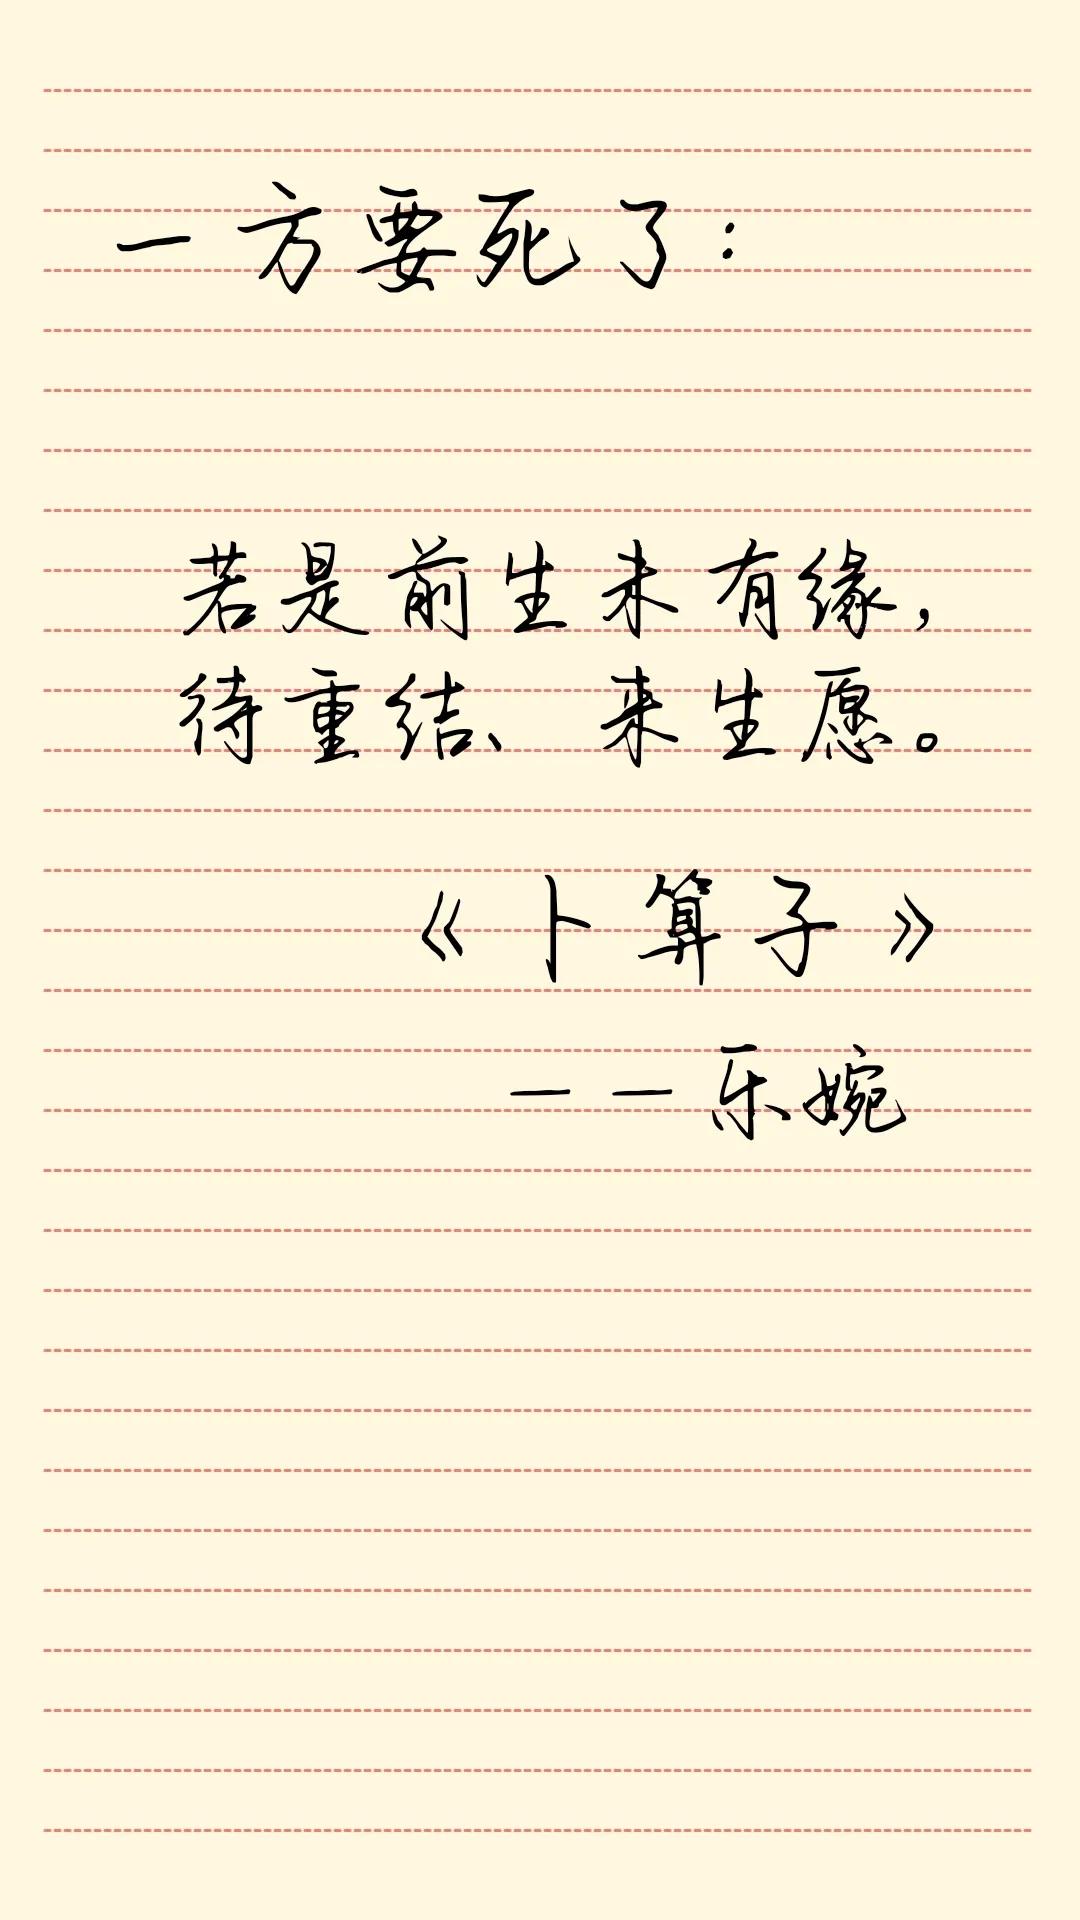 一方要死了：
若是前生未有缘，
待重结、来生愿。
《卜算子》
——乐婉